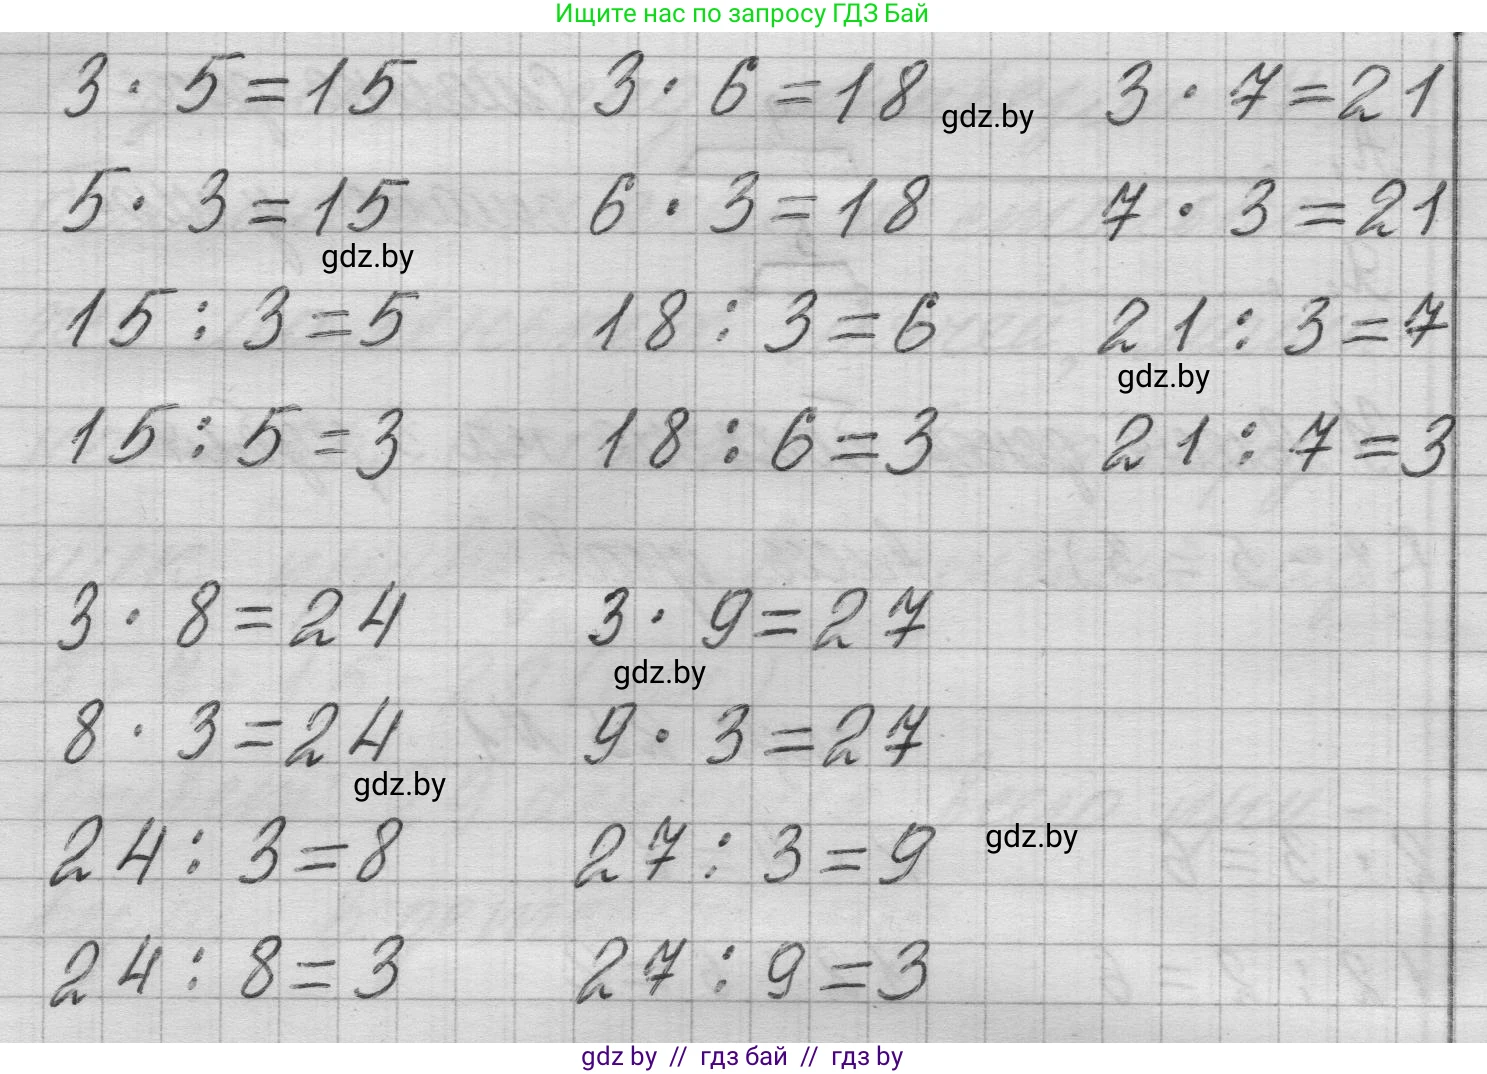 Ищите нас по запросу ГДЗ Бай
3 · 5 = 15 3 · 6 = 18 3 · 7 = 21
gdz.by
5 · 3 = 15 6 · 3 = 18 7 · 3 = 21
gdz.by
15 : 3 = 5 18 : 3 = 6 21 : 3 = 7
gdz.by
15 : 5 = 3 18 : 6 = 3 21 : 7 = 3
3 · 8 = 24 3 · 9 = 27
gdz.by
8 · 3 = 24 9 · 3 = 27
gdz.by
24 : 3 = 8 27 : 3 = 9
gdz.by
24 : 8 = 3 27 : 9 = 3
gdz by // гдз бай // гдз by